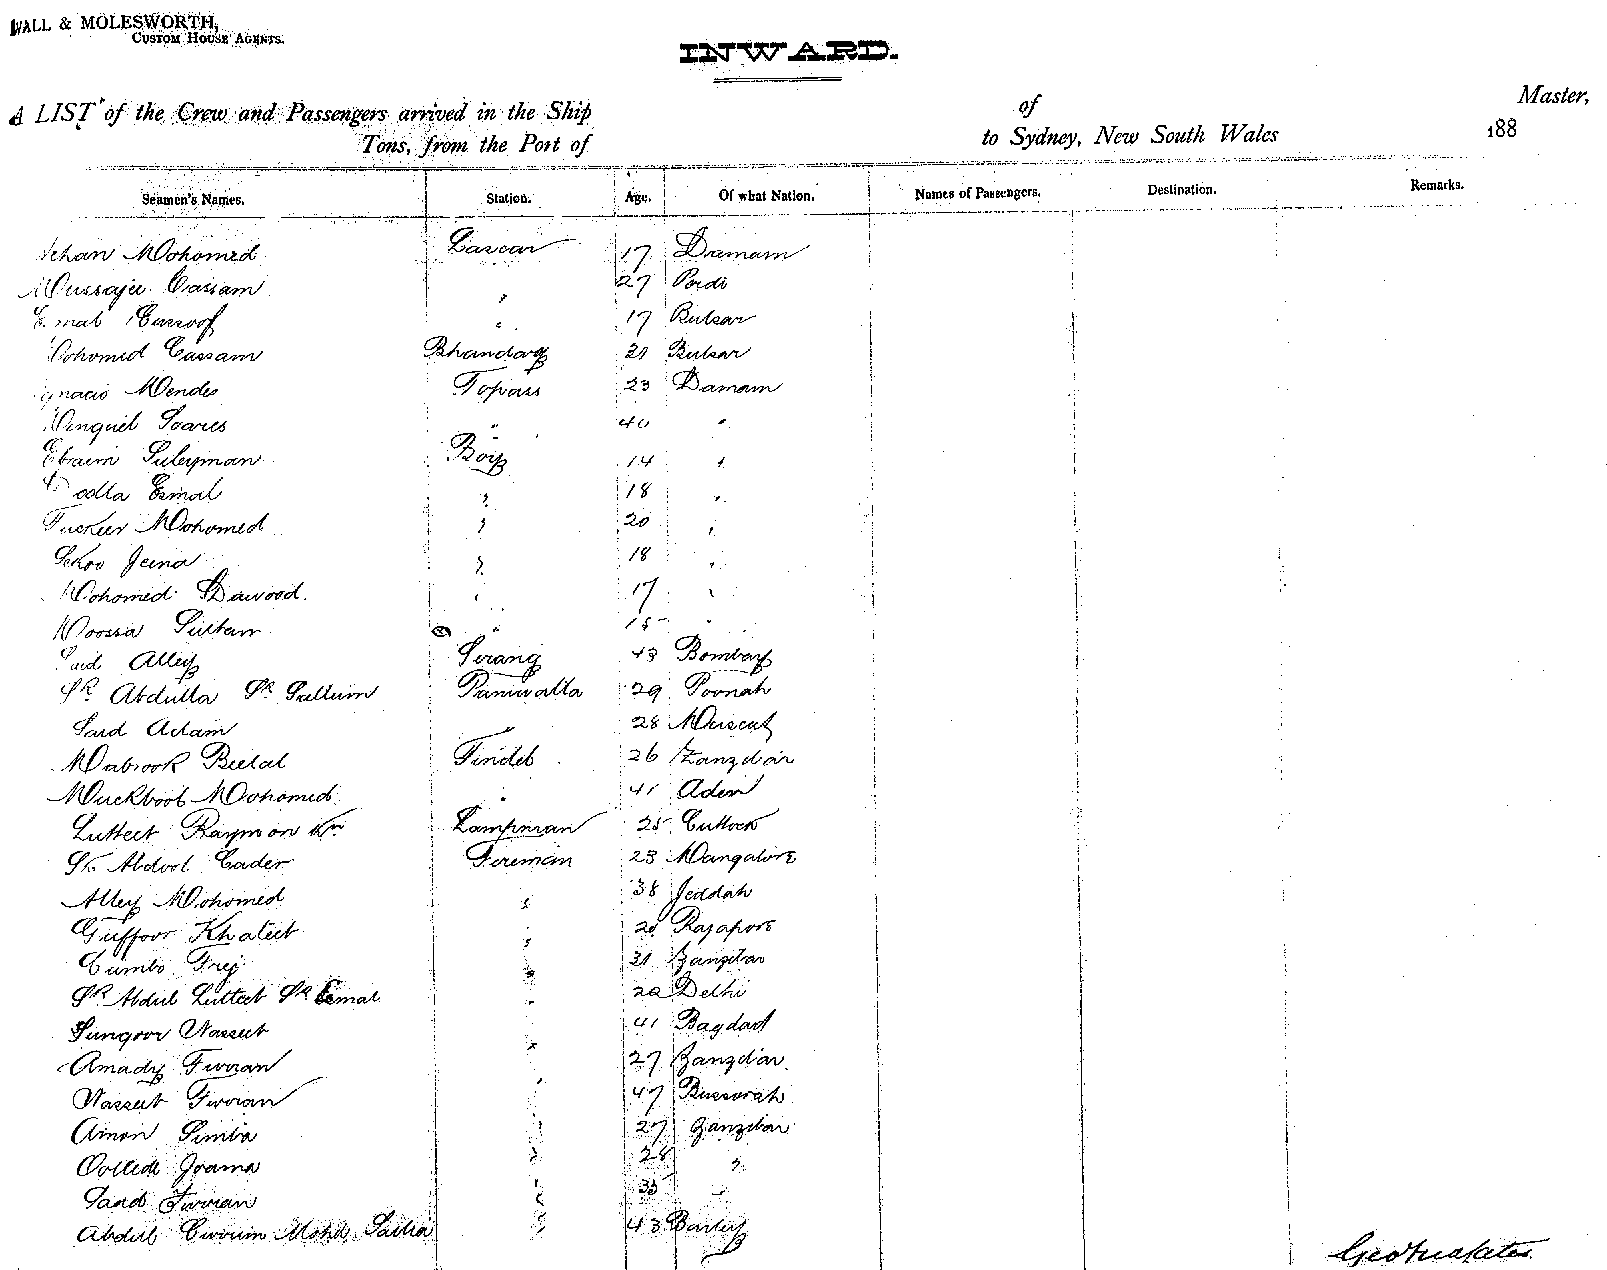 WALL & MOLESWORTH,
CUSTOM HOUSE AGENTS.
INWARD.
A LIST of the Crew and Passengers arrived in the Ship of Master,
Tons, from the Port of to Sydney, New South Wales 188
Seamen's Names. Station. Age. Of what Nation. Names of Passengers. Destination. Remarks.
Mohomed Lascar 17 Damam
Cassam " 27
Eussoof " 17 Bulsar
Mohomed Cassam Bhandary 21 Bulsar
Ignacio Mendes Topass 23 Damam
Minguel Soares " 40 "
Ebraim Suleyman Boy 14 "
Esmal " 18 "
Mohomed " 20 "
Jeena " 18 "
Mohomed Dawood " 17 "
Moossa Sultan " 15 "
Said Alley Serang 43 Bombay
Sk Abdulla Sk Sallum Paniwalla 29 Poonah
Said Adam " 28 Muscat
Mabrook Beelal Tindel 26 Zanzbar
Muckbool Mohomed " 41 Aden
Lutteet Raymon Kn Lampman 25 Cuttock
Sk Abdool Cader Fireman 23 Mangalore
Alley Mohomed " 38 Jeddah
Guffoor Khateeb " 28 Rajapore
Cumbo Frej " 31 Zanzibar
Sk Abdul Lutteet Sk Esmal " 22 Delhi
Sungoor Nasseeb " 41 Bagdad
Amady Fuoran " 27 Zanzibar
Nasseeb Fuoran " 47 Bussorah
Amon Simba " 27 Zanzibar
Joama " 28 "
Fuoran " 35 "
Abdul Curuim Mohd. " 43